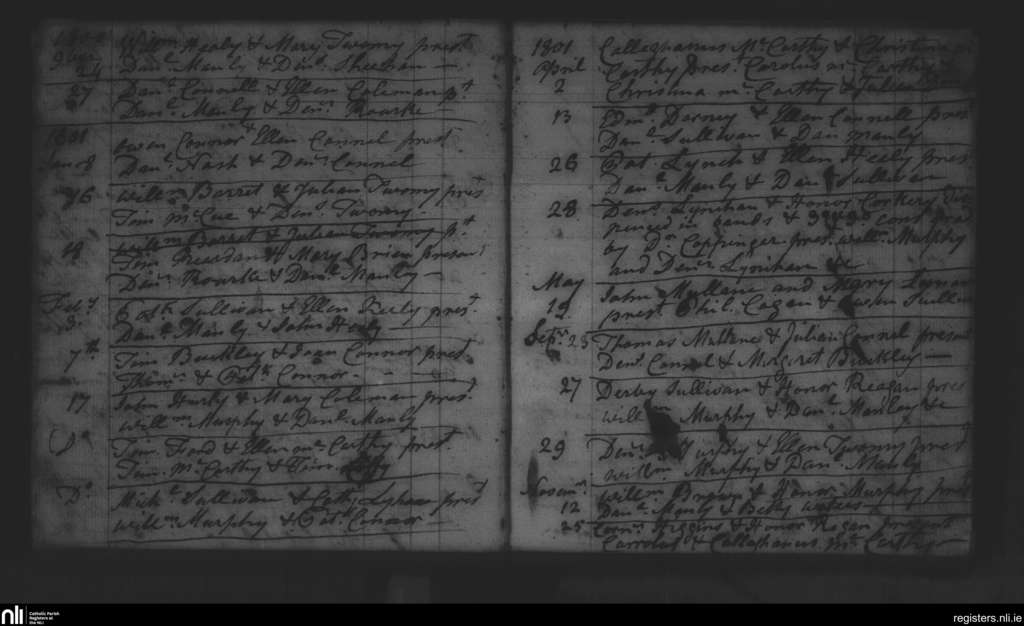 Willm Healy & Mary Twomy prest
Danl Manly & Denl Sheehan
27 Danl Connell & Ellen Coleman pt
Danl Manly & Denl Rourke
1801 Owen Connor & Ellen Connel prest
Danl Nash & Denl Connel
16 Willm Barret & Julian Twomy prest
Tim McCue & Denl Twomy
Willm Barret & Julian Twomy pt
Tim Reardan & Mary Brien present
Denl Rourke & Danl Manly
Feby 3 Patk Sullivan & Ellen prest
Danl Manly & John Healy
7th Tim Buckley & Joan Connor prest
& Patk Connor
17 John & Mary Coleman prest
Willm Murphy & Danl Manly
Tim Foord & Ellen mc Carthy prest
Tim McCarthy & Tim
Do Michl Sullivan & Cath Lyhane prest
Willm Murphy & Patk Connor
1801 Callaghanus McCarthy & Christina
April Carthy pres. Carolus mc Carthy &
2 Christina mc Carthy & Julian
13 Danl & Ellen Connell pres
Danl Sullivan & Dan Manly
26 Pat Lynch & Ellen Healy pres
Danl Manly & Danl Sullivan
28 Denl Lynihan & Honor Corkery Dis
penced in banns & consd
by Dr Coppinger pres. Willm Murphy
and Denl Lynihan &c
May John Mullane and Mary
19 prest Phil. Eagan & Owen Sullivan
Sepr 23 Thomas Mullane & Julian Connel present
Denl Connel & Margret Buckley
27 Derby Sullivan & Honor Reagan pres
Willm Murphy & Danl Manley &c
29 Denl Murphy & Ellen Twomy prest
Willm Murphy & Dan Manly
Novemr Willm Brown & Honor Murphy prest
12 Danl Manly & Betty
25 Cornl Higgins & Honor Regan present
Carrolus & Callaghanus Mc Carthy
nli Catholic Parish
Registers at
the NLI
registers.nli.ie